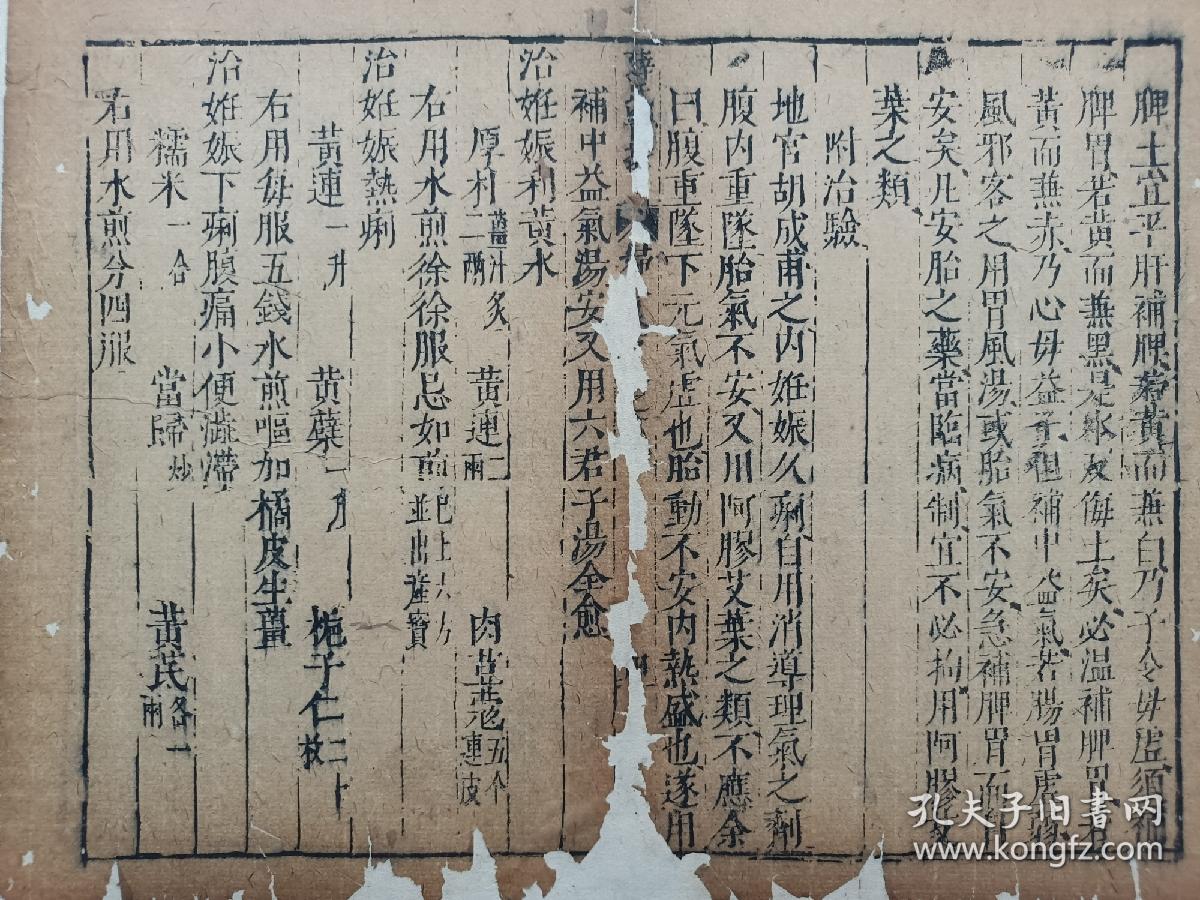 脾土宜平肝補脾若黃而無白乃子令母虛須補
脾胃若黃而無黑是水反侮土矣必溫補脾胃若
黃而無赤乃心母益子但補中益氣若腸胃虛
風邪客之用胃風湯或胎氣不安急補脾胃而
安矣凡安胎之藥當臨病制宜不必拘用阿膠艾
葉之類
附治驗
地官胡成甫之內妊娠久痢自用消導理氣之劑
腹內重墜胎氣不安又用阿膠艾葉之類不應余
曰腹重墜下元氣虛也胎動不安內熱盛也遂用
補中益氣湯安又用六君子湯全愈
治妊娠利黃水
厚朴二兩薑汁炙 黃連二兩 肉荳蔻五个連皮
右用水煎徐徐服忌如前並出產寶
治妊娠熱痢
黃連一升 黃蘗一升 梔子仁二十枚
右用每服五錢水煎嘔加橘皮生薑
治妊娠下痢腹痛小便澁滯
糯米一合 當歸炒 黃芪各一兩
右用水煎分四服
孔夫子旧書网
www.kongfz.com